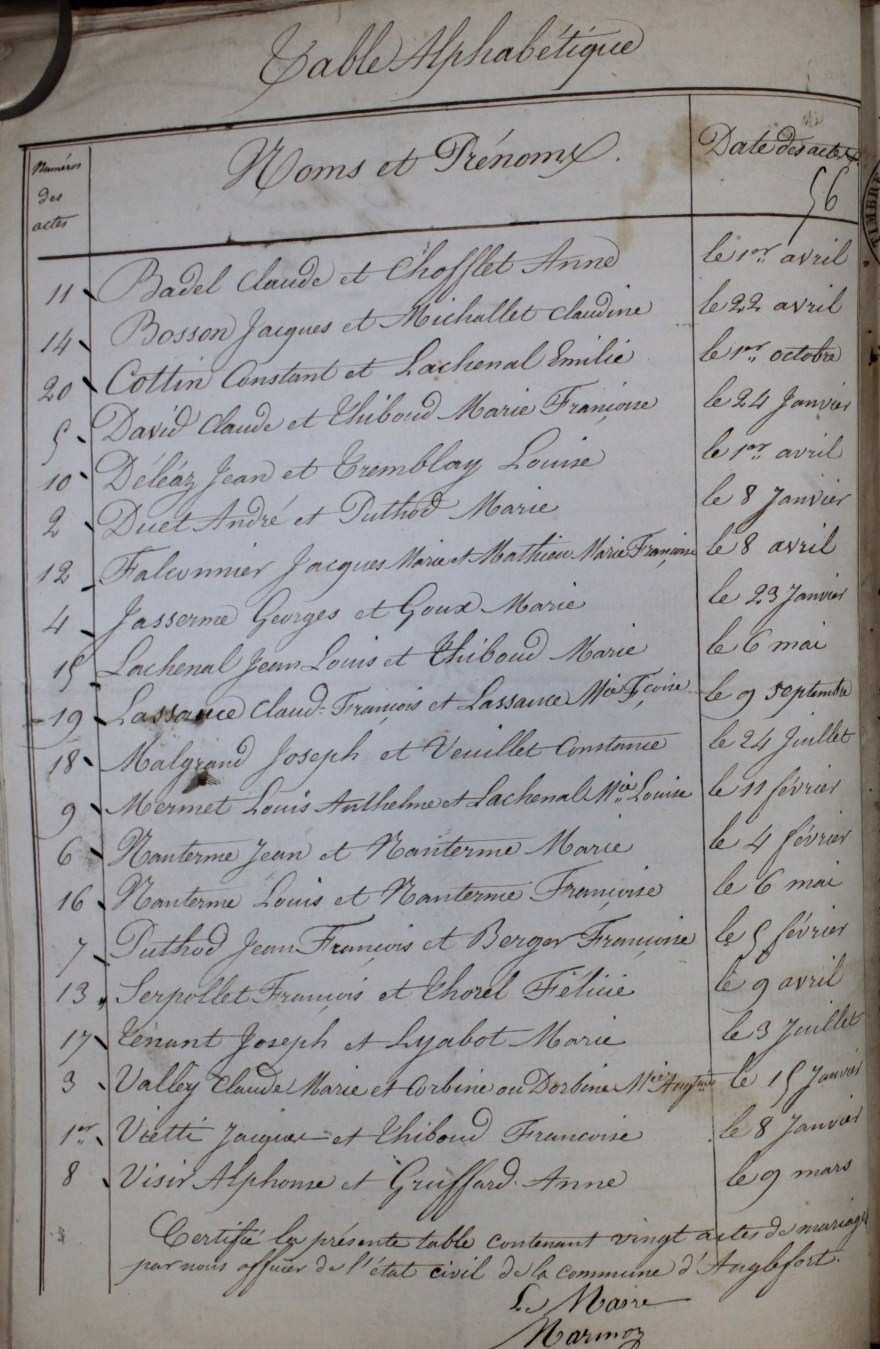 Table Alphabétique
Numéros des actes
Noms et Prénoms.
Date des actes.
56
11 Badel Claude et Chofflet Anne le 1er avril
14 Bosson Jacques et Michallet Claudine le 22 avril
20 Cottin Constant et Lachenal Emilie le 1er octobre
5 David Claude et Thiboud Marie Françoise le 24 Janvier
10 Déléaz Jean et Tremblay Louise le 1er avril
2 Duet André et Puthod Marie le 8 Janvier
12 Falconnier Jacques Marie et Mathieu Marie Françoise le 8 avril
4 Jasserme Georges et Goux Marie le 23 Janvier
15 Lachenal Jean Louis et Thiboud Marie le 6 mai
19 Lassauce Claud. François et Lassauce Mie Fçoise le 9 septembre
18 Malgrand Joseph et Veuillet Constance le 24 Juillet
9 Mermet Louis Anthelme et Lachenal Mie Louise le 11 février
6 Nanterme Jean et Nanterme Marie le 4 février
16 Nanterme Louis et Nanterme Françoise le 6 mai
7 Puthod Jean François et Berger Françoise le 5 février
13 Serpollet François et Thorel Félicie le 9 avril
17 Ténant Joseph et Lyabot Marie le 3 Juillet
3 Valley Claude Marie et Corbine ou Dorbine Mie le 15 Janvier
1er Vietti Jacques et Thiboud Francoise le 8 Janvier
8 Visir Alphonse et Gruffard Anne le 9 mars
Certifié la présente table contenant vingt actes de mariage
par nous officier de l'état civil de la commune d'Anglefort.
Le Maire
Marmoz
TIMBRE